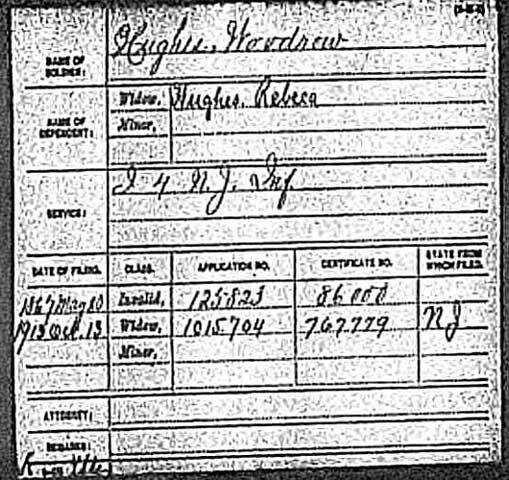 NAME OF SOLDIER: Hughes, Woodrow
NAME OF DEPENDENT: Widow, Hughes, Rebeca
Minor,
SERVICE: I 4 N.J. Inf.
DATE OF FILING. CLASS. APPLICATION NO. CERTIFICATE NO. STATE FROM WHICH FILED.
1867 May 20 Invalid, 125823 86000
1913 Oct. 13 Widow, 1015704 767779 NJ
Minor,
ATTORNEY:
REMARKS: